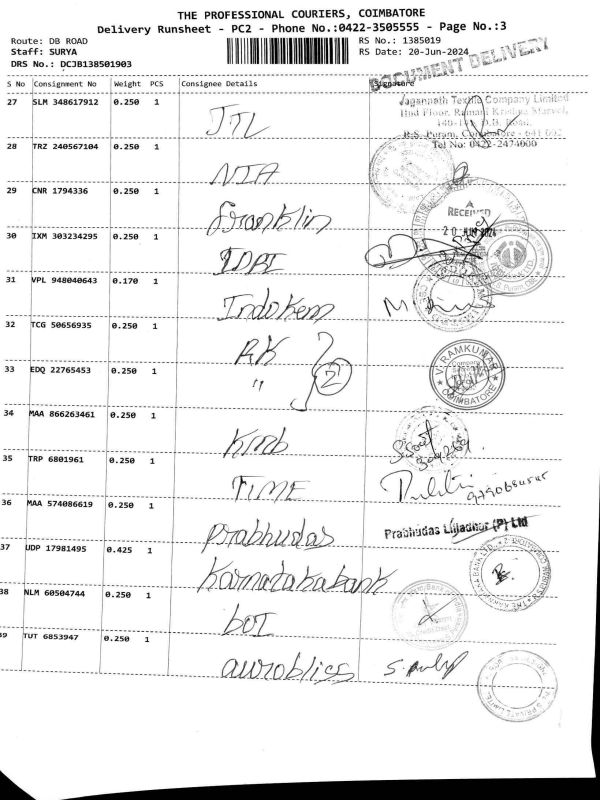 THE PROFESSIONAL COURIERS, COIMBATORE
Delivery Runsheet - PC2 - Phone No.:0422-3505555 - Page No.:3
Route: DB ROAD
RS No.: 1385019
Staff: SURYA
RS Date: 20-Jun-2024
DRS No.: DCJB138501903
DOCUMENT DELIVERY
S No Consignment No Weight PCS Consignee Details Signature
27 SLM 348617912 0.250 1 JTL
Jagannath Textile Company Limited
IInd Floor, Ramani Krishna Marvel,
R.S. Puram, Coimbatore - 641 002
Tel No: 0422-2474000
28 TRZ 240567104 0.250 1 NIA
29 CNR 1794336 0.250 1 franklin
RECEIVED
20 JUN 2024
30 IXM 303234295 0.250 1 IDBI
31 VPL 948040643 0.170 1 Indokem
32 TCG 50656935 0.250 1 RK
V. RAMKUMAR
COIMBATORE
33 EDQ 22765453 0.250 1 " 2
34 MAA 866263461 0.250 1 KMB
35 TRP 6801961 0.250 1 TIME
36 MAA 574086619 0.250 1 prabhudas
Prabhudas Lilladher (P) Ltd
37 UDP 17981495 0.425 1 Karnatakabank
38 NLM 60504744 0.250 1 BOI
39 TUT 6853947 0.250 1 aurobliss